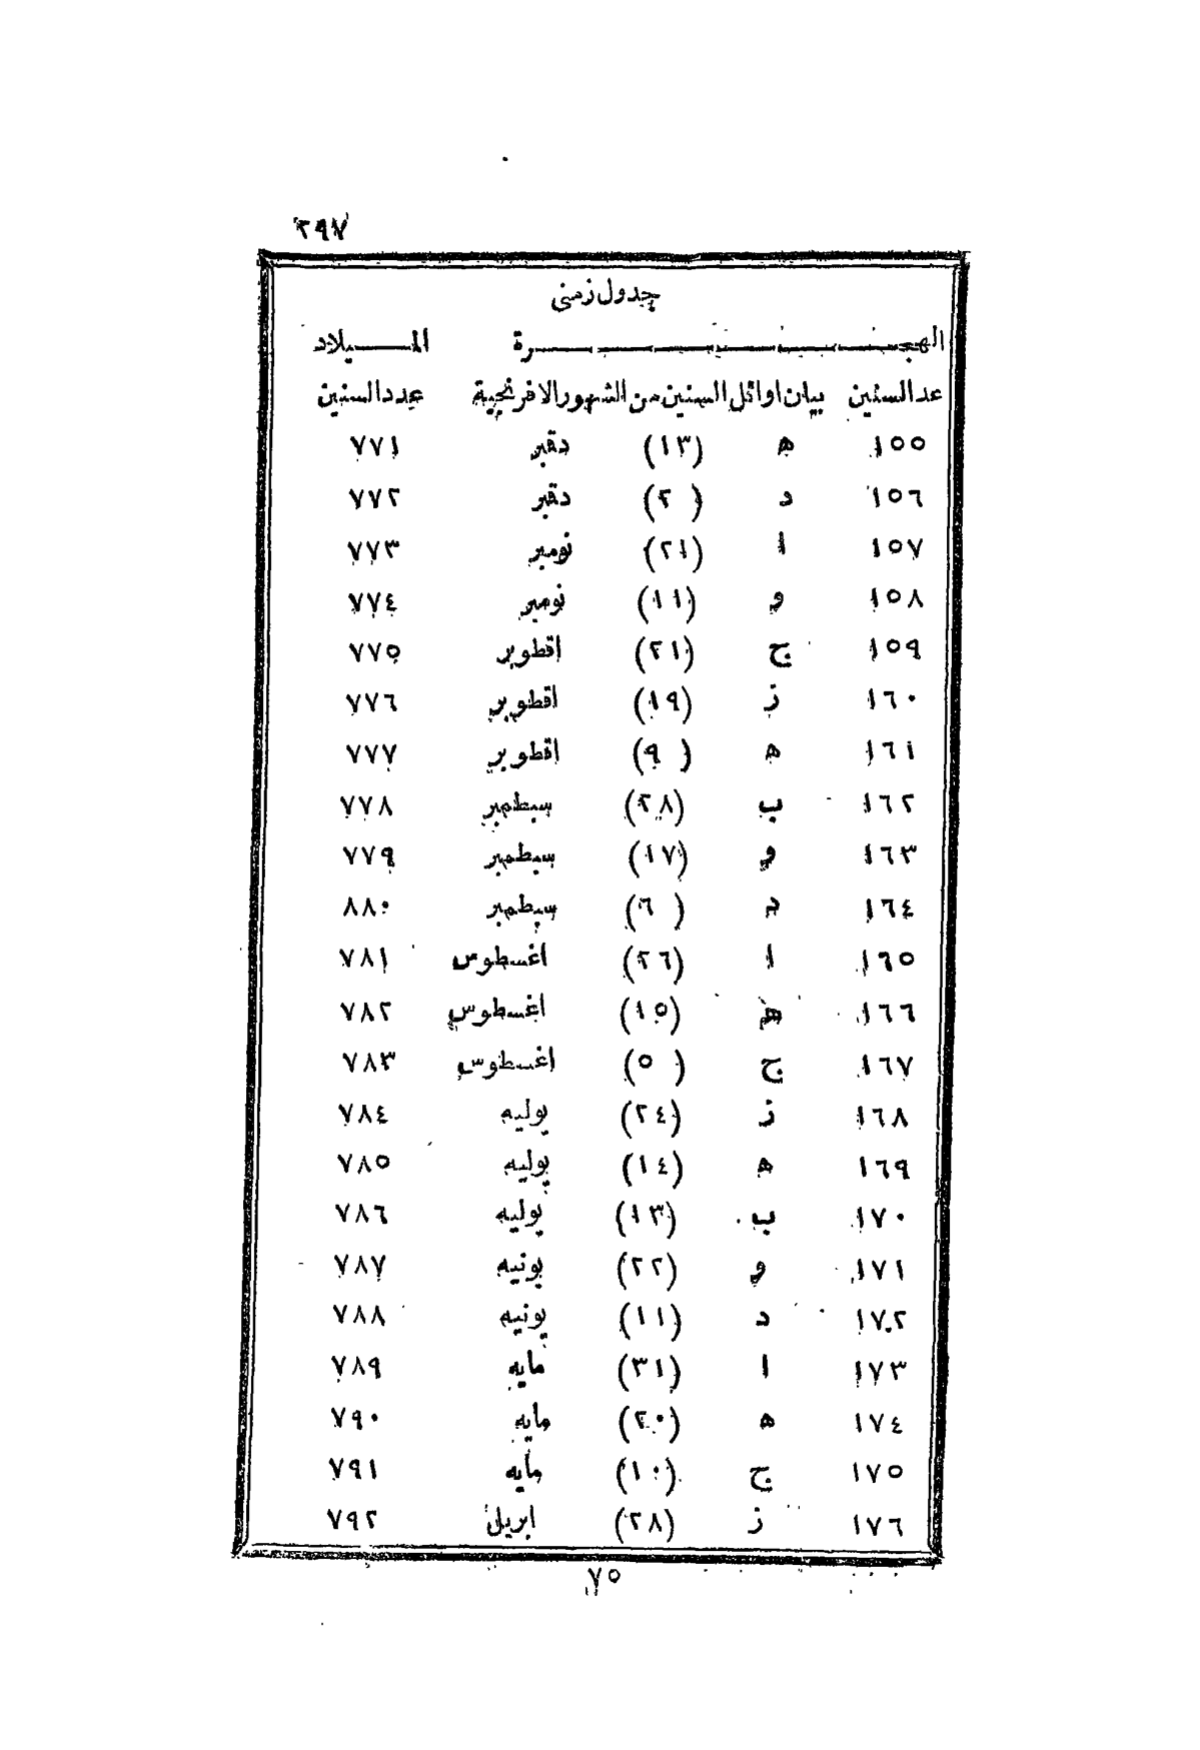 ٢٩٧
جدول زمنى
الهجـــــــــرة الميـــلاد
عدالسنين بيان اوائل السنين من الشهور الافرنجية عددالسنين
١٥٥ ه (١٣) دقبر ٧٧١
١٥٦ د (٢) دقبر ٧٧٢
١٥٧ ا (٢١) نومبر ٧٧٣
١٥٨ و (١١) نومبر ٧٧٤
١٥٩ ج (٢١) اقطوبر ٧٧٥
١٦٠ ز (١٩) اقطوبر ٧٧٦
١٦١ ه (٩) اقطوبر ٧٧٧
١٦٢ ب (٢٨) سبطمبر ٧٧٨
١٦٣ و (١٧) سبطمبر ٧٧٩
١٦٤ د (٦) سبطمبر ٨٨٠
١٦٥ ا (٢٦) اغسطوس ٧٨١
١٦٦ ه (١٥) اغسطوس ٧٨٢
١٦٧ ج (٥) اغسطوس ٧٨٣
١٦٨ ز (٢٤) يوليه ٧٨٤
١٦٩ ه (١٤) يوليه ٧٨٥
١٧٠ ب (١٣) يوليه ٧٨٦
١٧١ و (٢٢) يونيه ٧٨٧
١٧٢ د (١١) يونيه ٧٨٨
١٧٣ ا (٣١) مايه ٧٨٩
١٧٤ ه (٢٠) مايه ٧٩٠
١٧٥ ج (١٠) مايه ٧٩١
١٧٦ ز (٢٨) ابريل ٧٩٢
٧٥